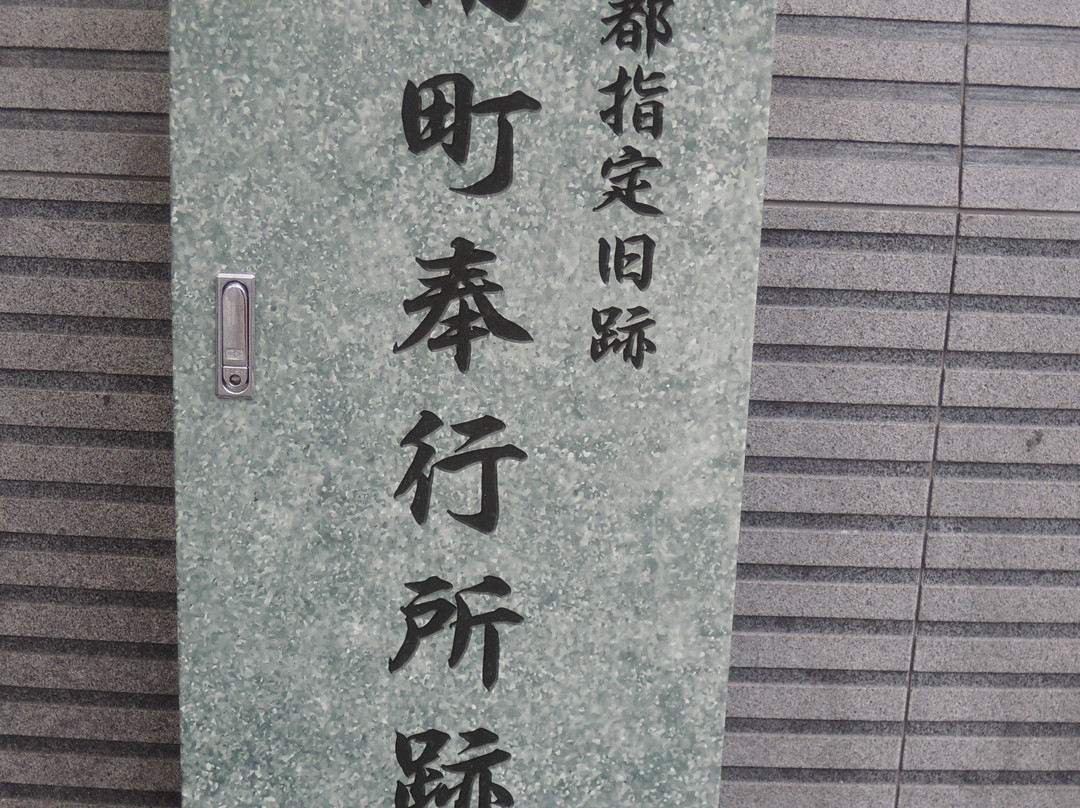 都指定旧跡
町奉行所跡